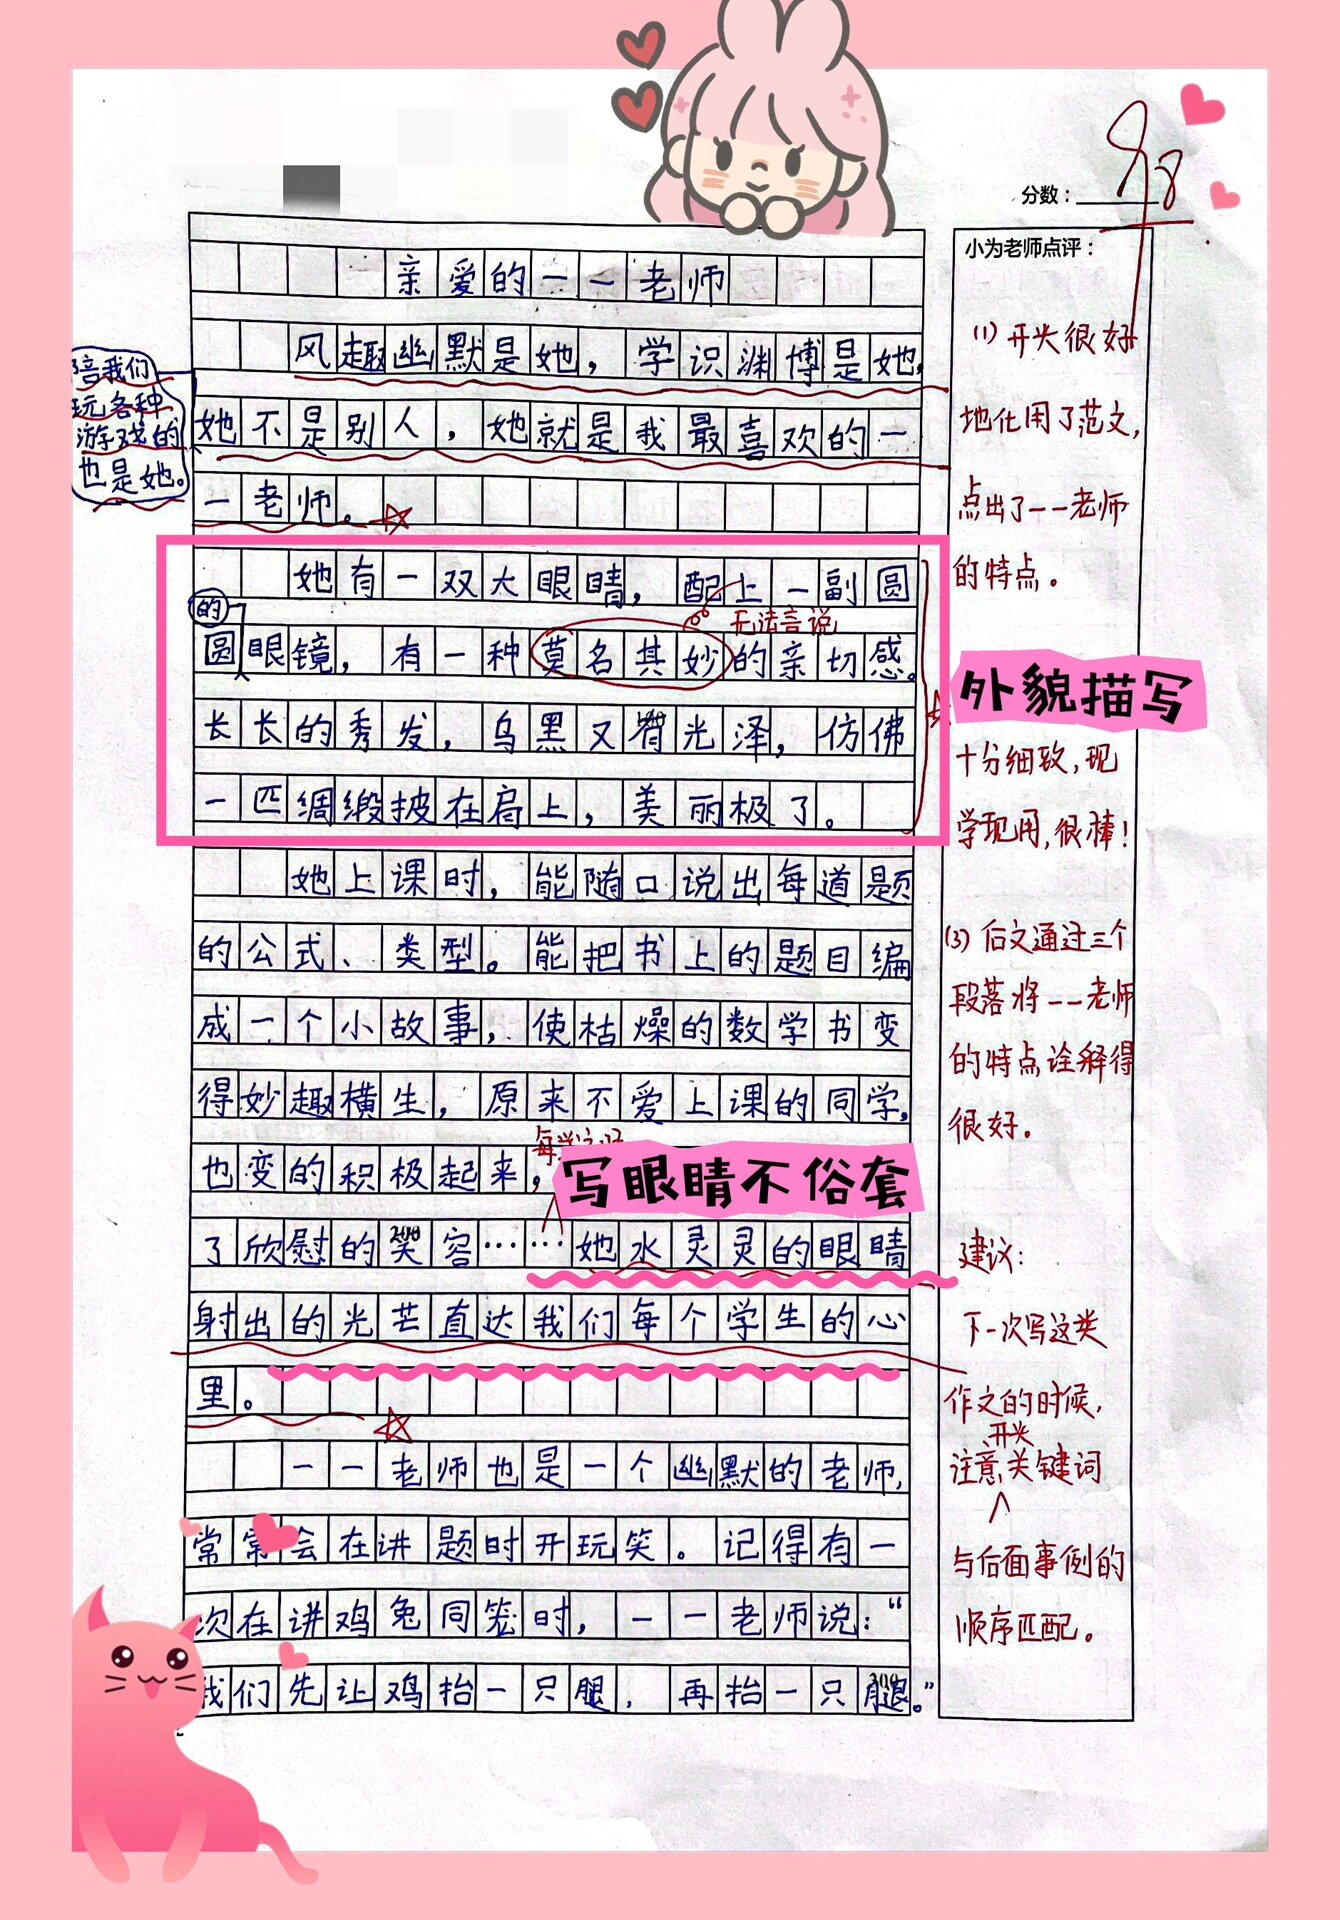 分数：98
小为老师点评：
亲爱的一一老师
风趣幽默是她，学识渊博是她，
陪我们
玩各种
游戏的
也是她。
她不是别人，她就是我最喜欢的一
一老师。
她有一双大眼睛，配上一副圆
的
无法言说
圆眼镜，有一种莫名其妙的亲切感。
长长的秀发，乌黑又有光泽，仿佛
一匹绸缎披在肩上，美丽极了。
她上课时，能随口说出每道题
的公式、类型。能把书上的题目编
成一个小故事，使枯燥的数学书变
得妙趣横生，原来不爱上课的同学，
也变的积极起来，
写眼睛不俗套
了欣慰的笑容……她水灵灵的眼睛
200
射出的光芒直达我们每个学生的心
里。
一一老师也是一个幽默的老师，
常常会在讲题时开玩笑。记得有一
次在讲鸡兔同笼时，一一老师说：“
我们先让鸡抬一只腿，再抬一只腿。”
300
(1) 开头很好
地化用了范文，
点出了一一老师
的特点。
外貌描写
十分细致，现
学现用，很棒！
(3) 后文通过三个
段落将一一老师
的特点诠释得
很好。
建议：
下一次写这类
作文的时候，
开头
注意关键词
与后面事例的
顺序匹配。